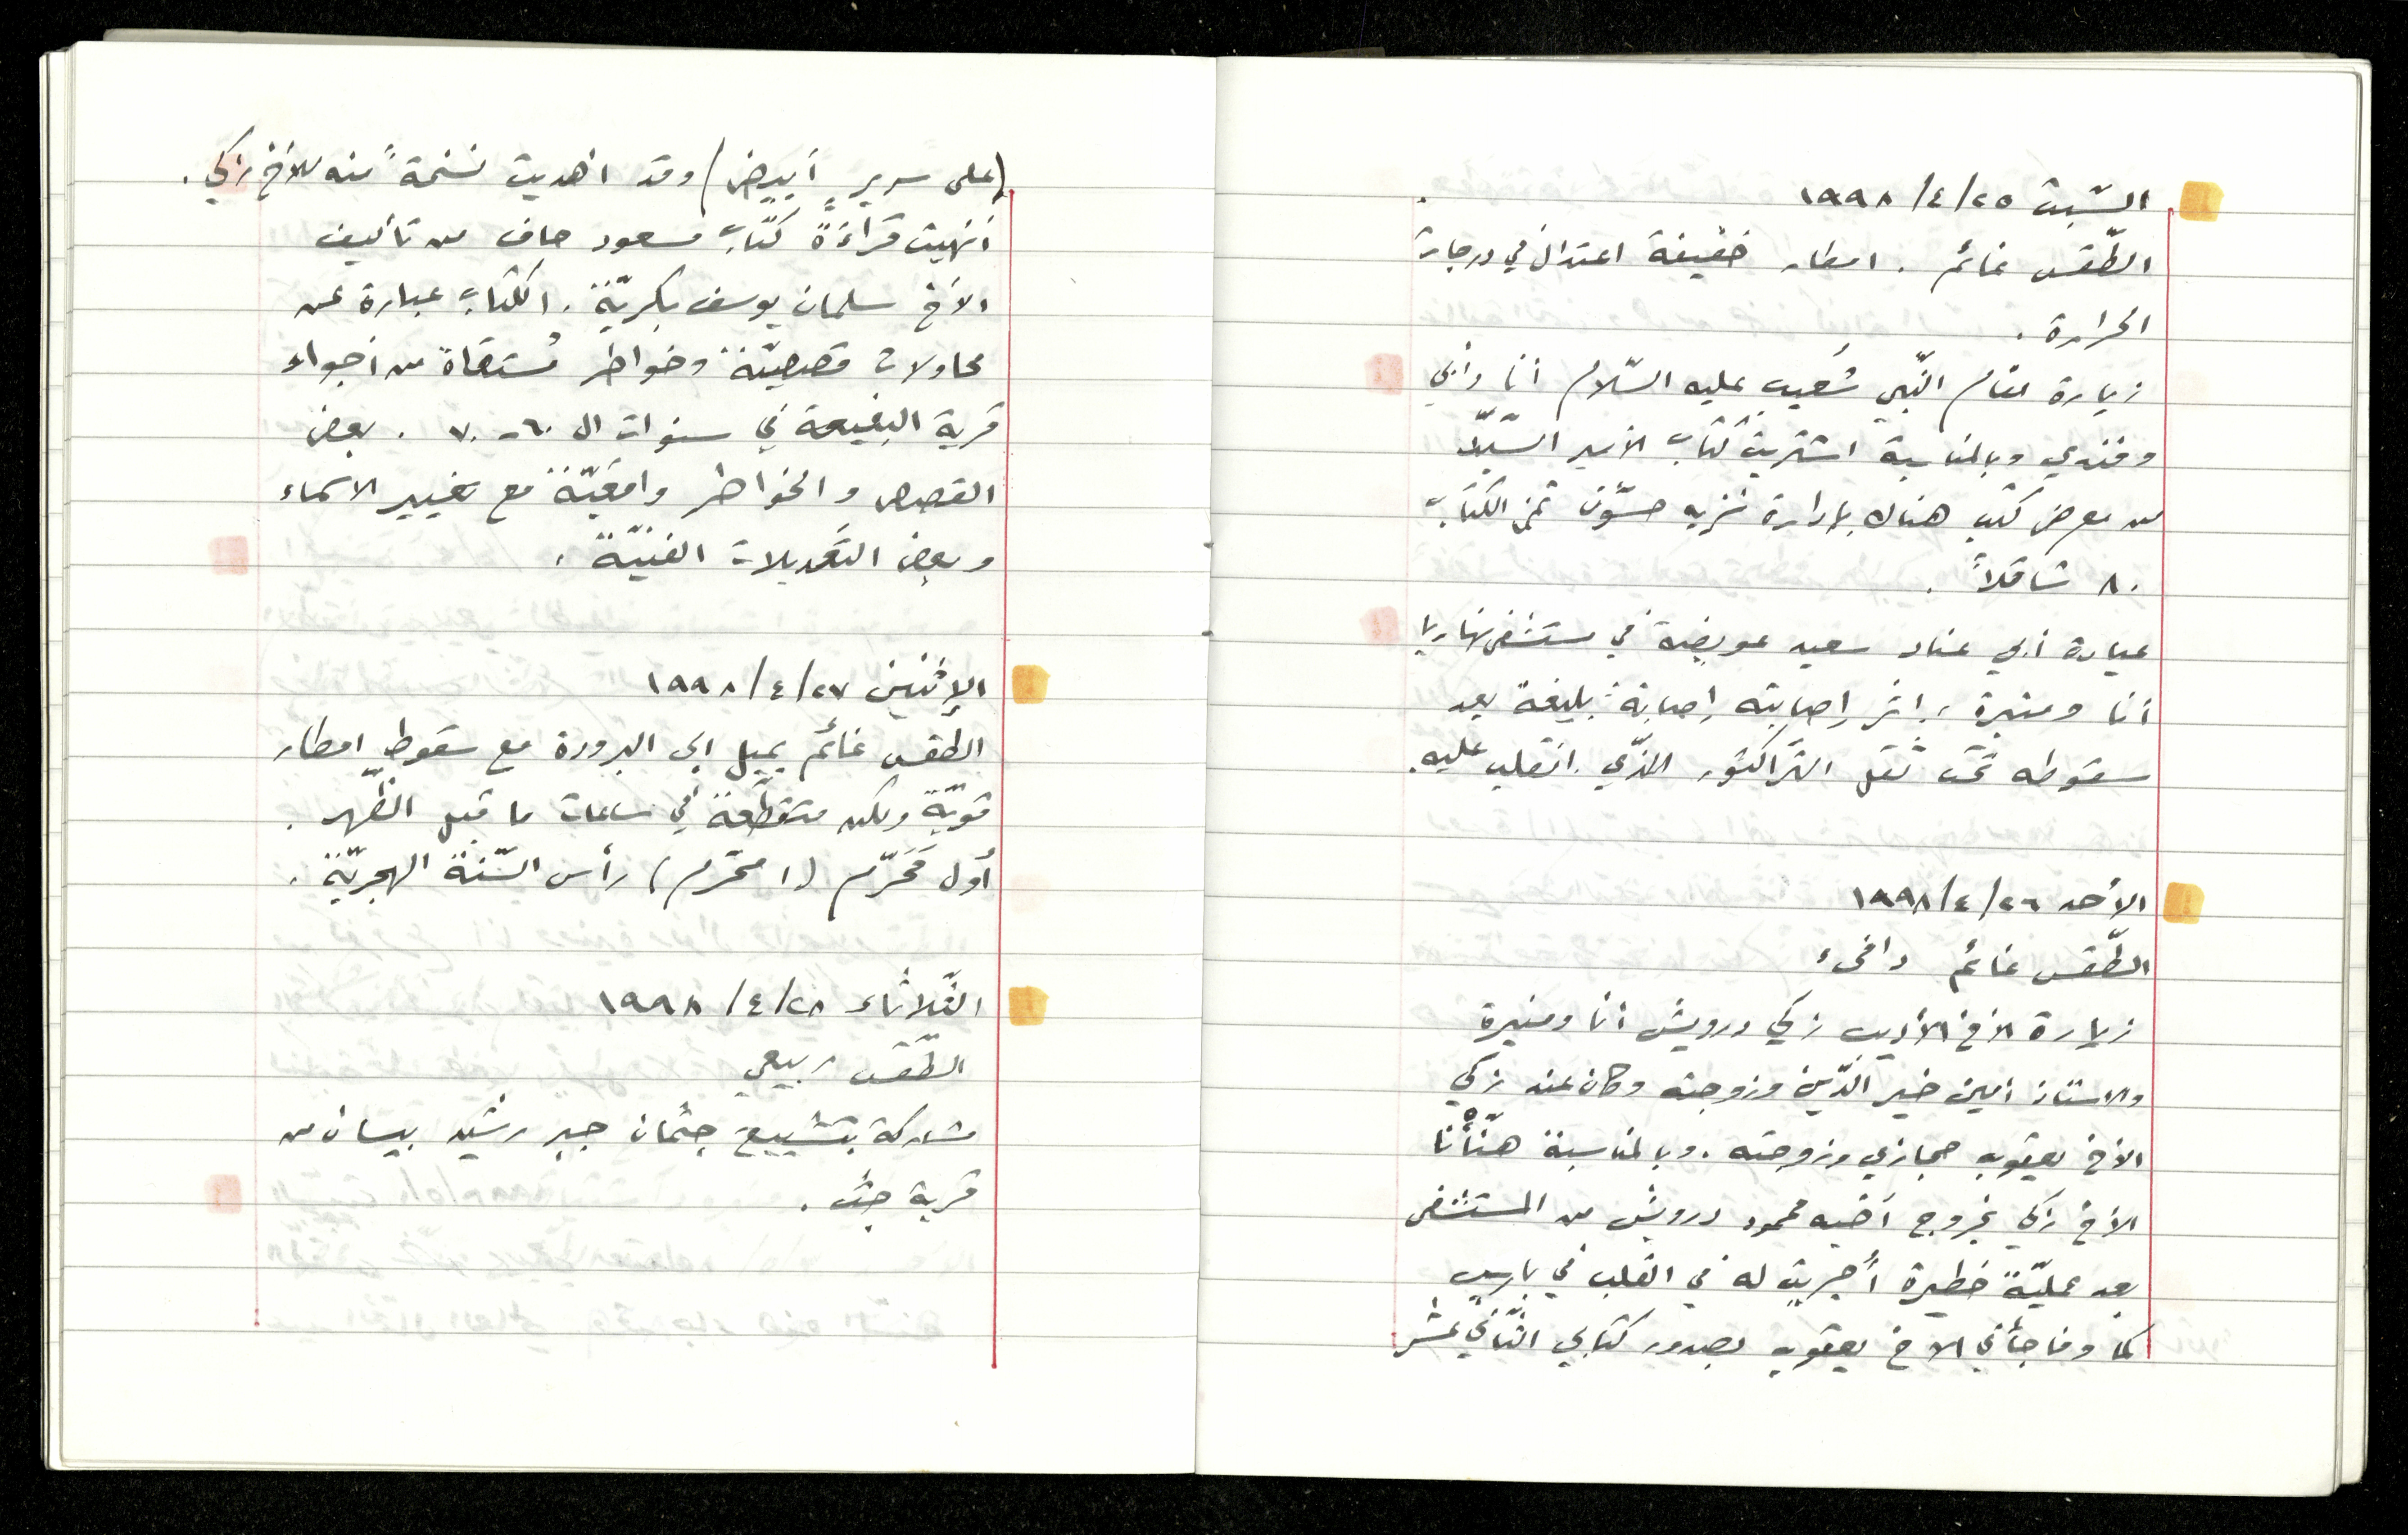 السّبت ٢٥/٤/١٩٩٨
الطّقس غائم . امطار خفيفة اعتدال في درجات
الحرارة .
زيارة مقام النّبي شُعيب عليه السّلام أنا وأبي
وفندي وبالمناسبة اشتريت كتاب الأمير السّيّد
من معرض كتب هناك بإدارة نزيه حسّون ثمن الكتاب
٨٠ شاقلاً .
عيادة أبي عناد سعيد عويضة في مستشفى نهاريا
أنا ومنيرة ، إثر إصابته إصابة بليغة بعد
سقوطه تحت ثقل التّراكتور الذّي انقلب عليه.
الأحد ٢٦/٤/١٩٩٨
الطّقس غائم دافىء
زيارة الأخ الأديب زكي درويش أنا ومنيرة
والاستاذ أمين خير الدّين وزوجته وكان عند زكي
الأخ يعقوب حجازي وزوجته . وبالمناسبة هنّأنا
الأخ زكي بخروج أخيه محمود درويش من المستشفى
بعد عمليّة خطيرة أُجريت له في القلب في باريس
كما وفاجأني الاخ يعقوب بصدور كتابي الثّاني عشر
(على سريرٍ أبيض) وقد اهديت نسخةً منه للأخ زكي .
أنهيت قراءةً كتاب مسعود حاف من تأليف
الأخ سلمان يوسف بكريّة . الكتاب عبارة عن
محاولات قصصيّة وخواطر مُستقاة من أجواء
قرية البقيعة في سنوات ال ٦٠-٧٠ . بعض
القصص والخواطر واقعيّة مع تغيير الاسماء
وبعض التّعديلات الفنيّة .
الإثنين ٢٧/٤/١٩٩٨
الطقس غائم يميل إلى البرودة مع سقوط امطار
قويّة ولكن متقطّعة في ساعات ما قبل الظّهر .
أوّل مُحَرّم (١ محّرم) رأس السّنة الهجريّة .
الثّلاثاء ٢٨/٤/١٩٩٨
الطّقس ربيعي
مشاركة بتشييع جثمان جبر رشيد بيسان من
قرية جث .